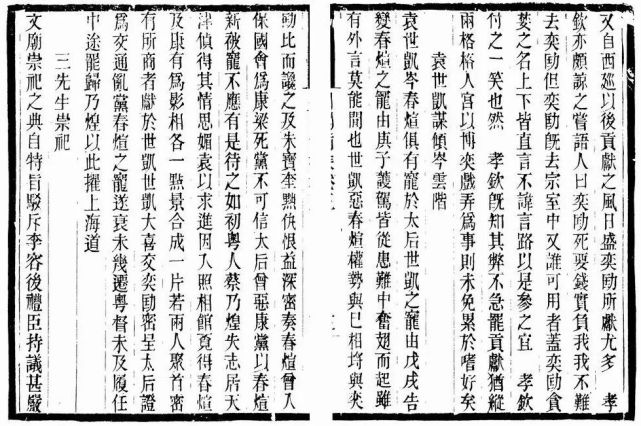 又自西巡以後貢獻之風日盛奕劻所獻尤多 孝
欽亦頗諒之嘗語人曰奕劻死要錢實負我我不難
去奕劻但奕劻旣去宗室中又誰可用者蓋奕劻貪
婪之名上下皆直言不諱言路以是參之宜 孝欽
付之一笑也然 孝欽旣知其弊不急罷貢獻猶縱
兩格格入宮以博奕戲弄爲事則未免累於嗜好矣
袁世凱謀傾岑雲階
袁世凱岑春煊俱有寵於太后世凱之寵由戊戌告
變春煊之寵由庚子護駕皆從患難中奮翅而起雖
有外言莫能間也世凱惡春煊權勢與己相埒與奕
劻比而讒之及朱寶奎黜仇恨益深密奏春煊曾入
保國會爲康梁死黨不可信太后曾惡康黨以春煊
新被寵不應有是待之如初粤人蔡乃煌失志居天
津偵得其情思媚袁以求進因入照相館覓得春煊
及康有爲影相各一點景合成一片若兩人聚首密
有所商者獻於世凱世凱大喜交奕劻密呈太后證
爲交通亂黨春煊之寵遂衰未幾遷粤督未及履任
中途罷歸乃煌以此擢上海道
三先生崇祀
文廟崇祀之典自特旨駁斥李容後禮臣持議甚嚴